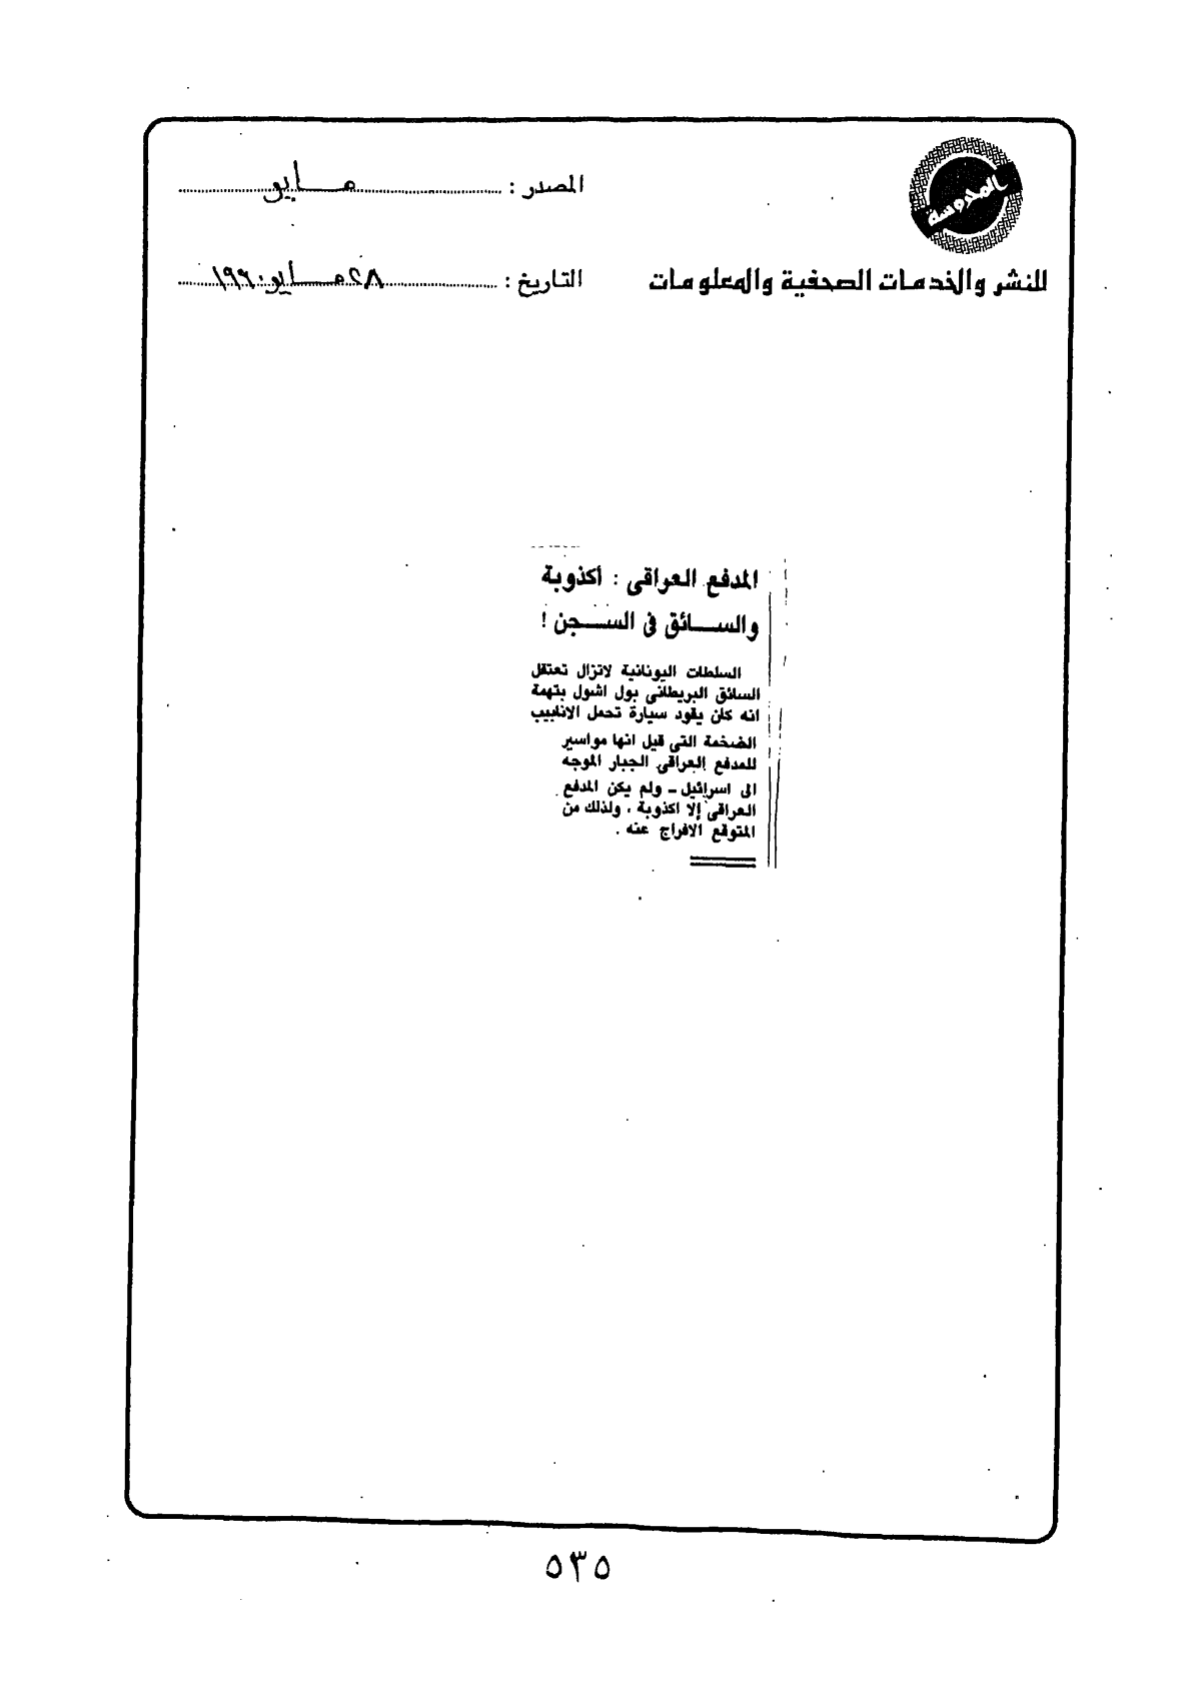 المحروسة
للنشر والخدمات الصحفية والمعلومات
المصدر : مايو
التاريخ : ٢٨ مايو ١٩٩٠
المدفع العراقى : أكذوبة
والسائق فى السجن !
السلطات اليونانية لاتزال تعتقل
السائق البريطانى بول اشول بتهمة
انه كان يقود سيارة تحمل الانابيب
الضخمة التى قيل انها مواسير
للمدفع العراقى الجبار الموجه
الى اسرائيل ـ ولم يكن المدفع
العراقى إلا اكذوبة ، ولذلك من
المتوقع الافراج عنه .
٥٣٥